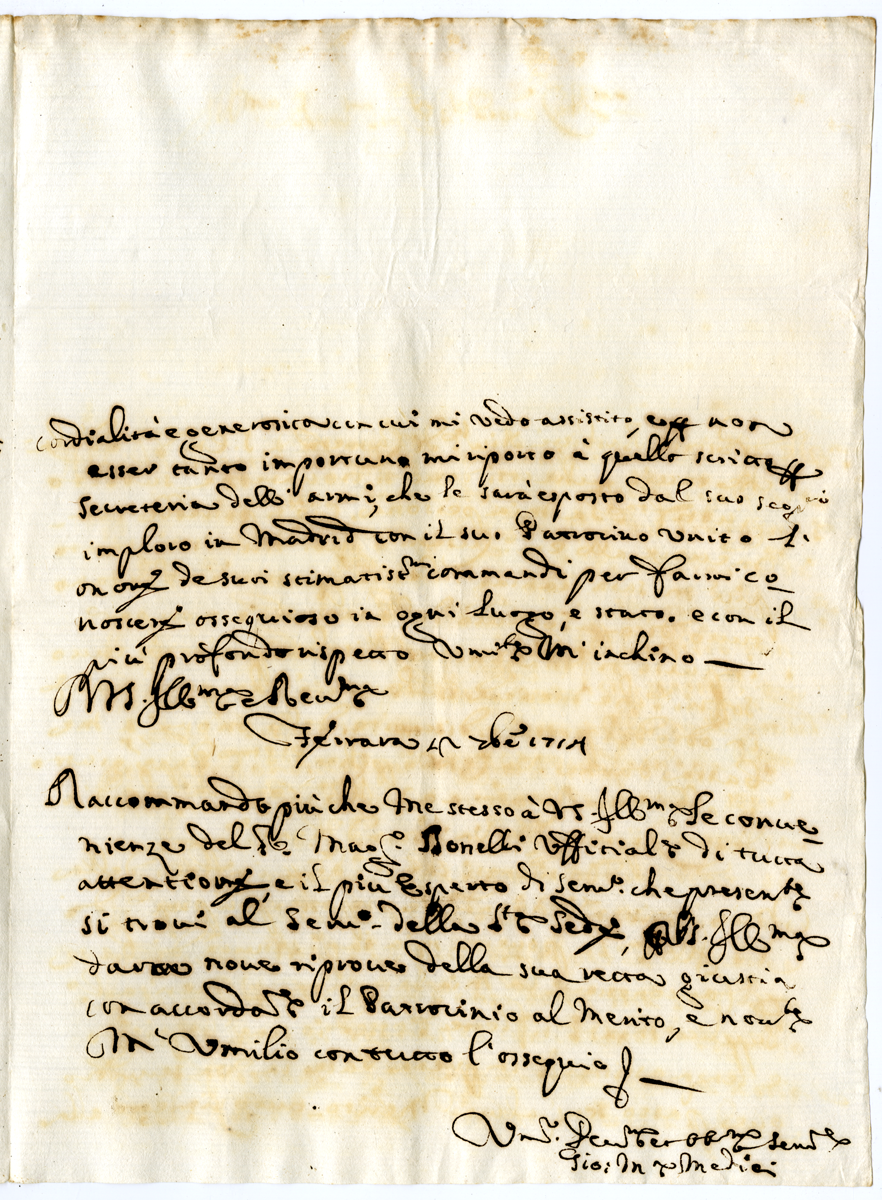 cordialità e generosità con cui mi vedo assistito, e p non
esser tanto importuno mi riporto à quello scritto
Secreteria dell' armi, che le sarà esposto dal suo
imploro in Madrid con il suo Patrocino Unito l'
onore de suoi stimatiss.mi commandi per farmi co_
noscere ossequioso in ogni luogo, e stato. e con il
più profondo rispetto Umil.te M' inchino
VS. Ill.ma e Reu.ma
Ferrara 7bre
Raccommando più che Me stesso à VS. Ill.ma le conue_
nienze del S.r Mag.r Bonelli Ufficiale di tutta
attentione, e il più Esperto di Seru.o che presente
si troui al Seru.o della S.ta Sede, VS. Ill.ma
dar noue riproue della sua retta giustitia
con accordare il Patrocinio al Merito, e nou.te
M' Umilio con tutto l'ossequio
Um.o Deu.mo et Obb.mo Seru.re
Gio: M.a Medici